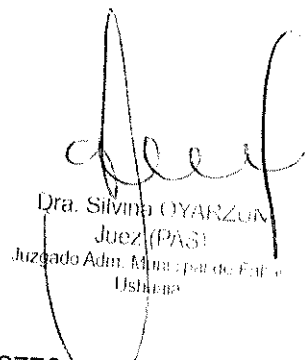 Dra. Silvina OYARZUN
Juez (PAS)
Juzgado Adm. Municipal de Faltas
Ushuaia